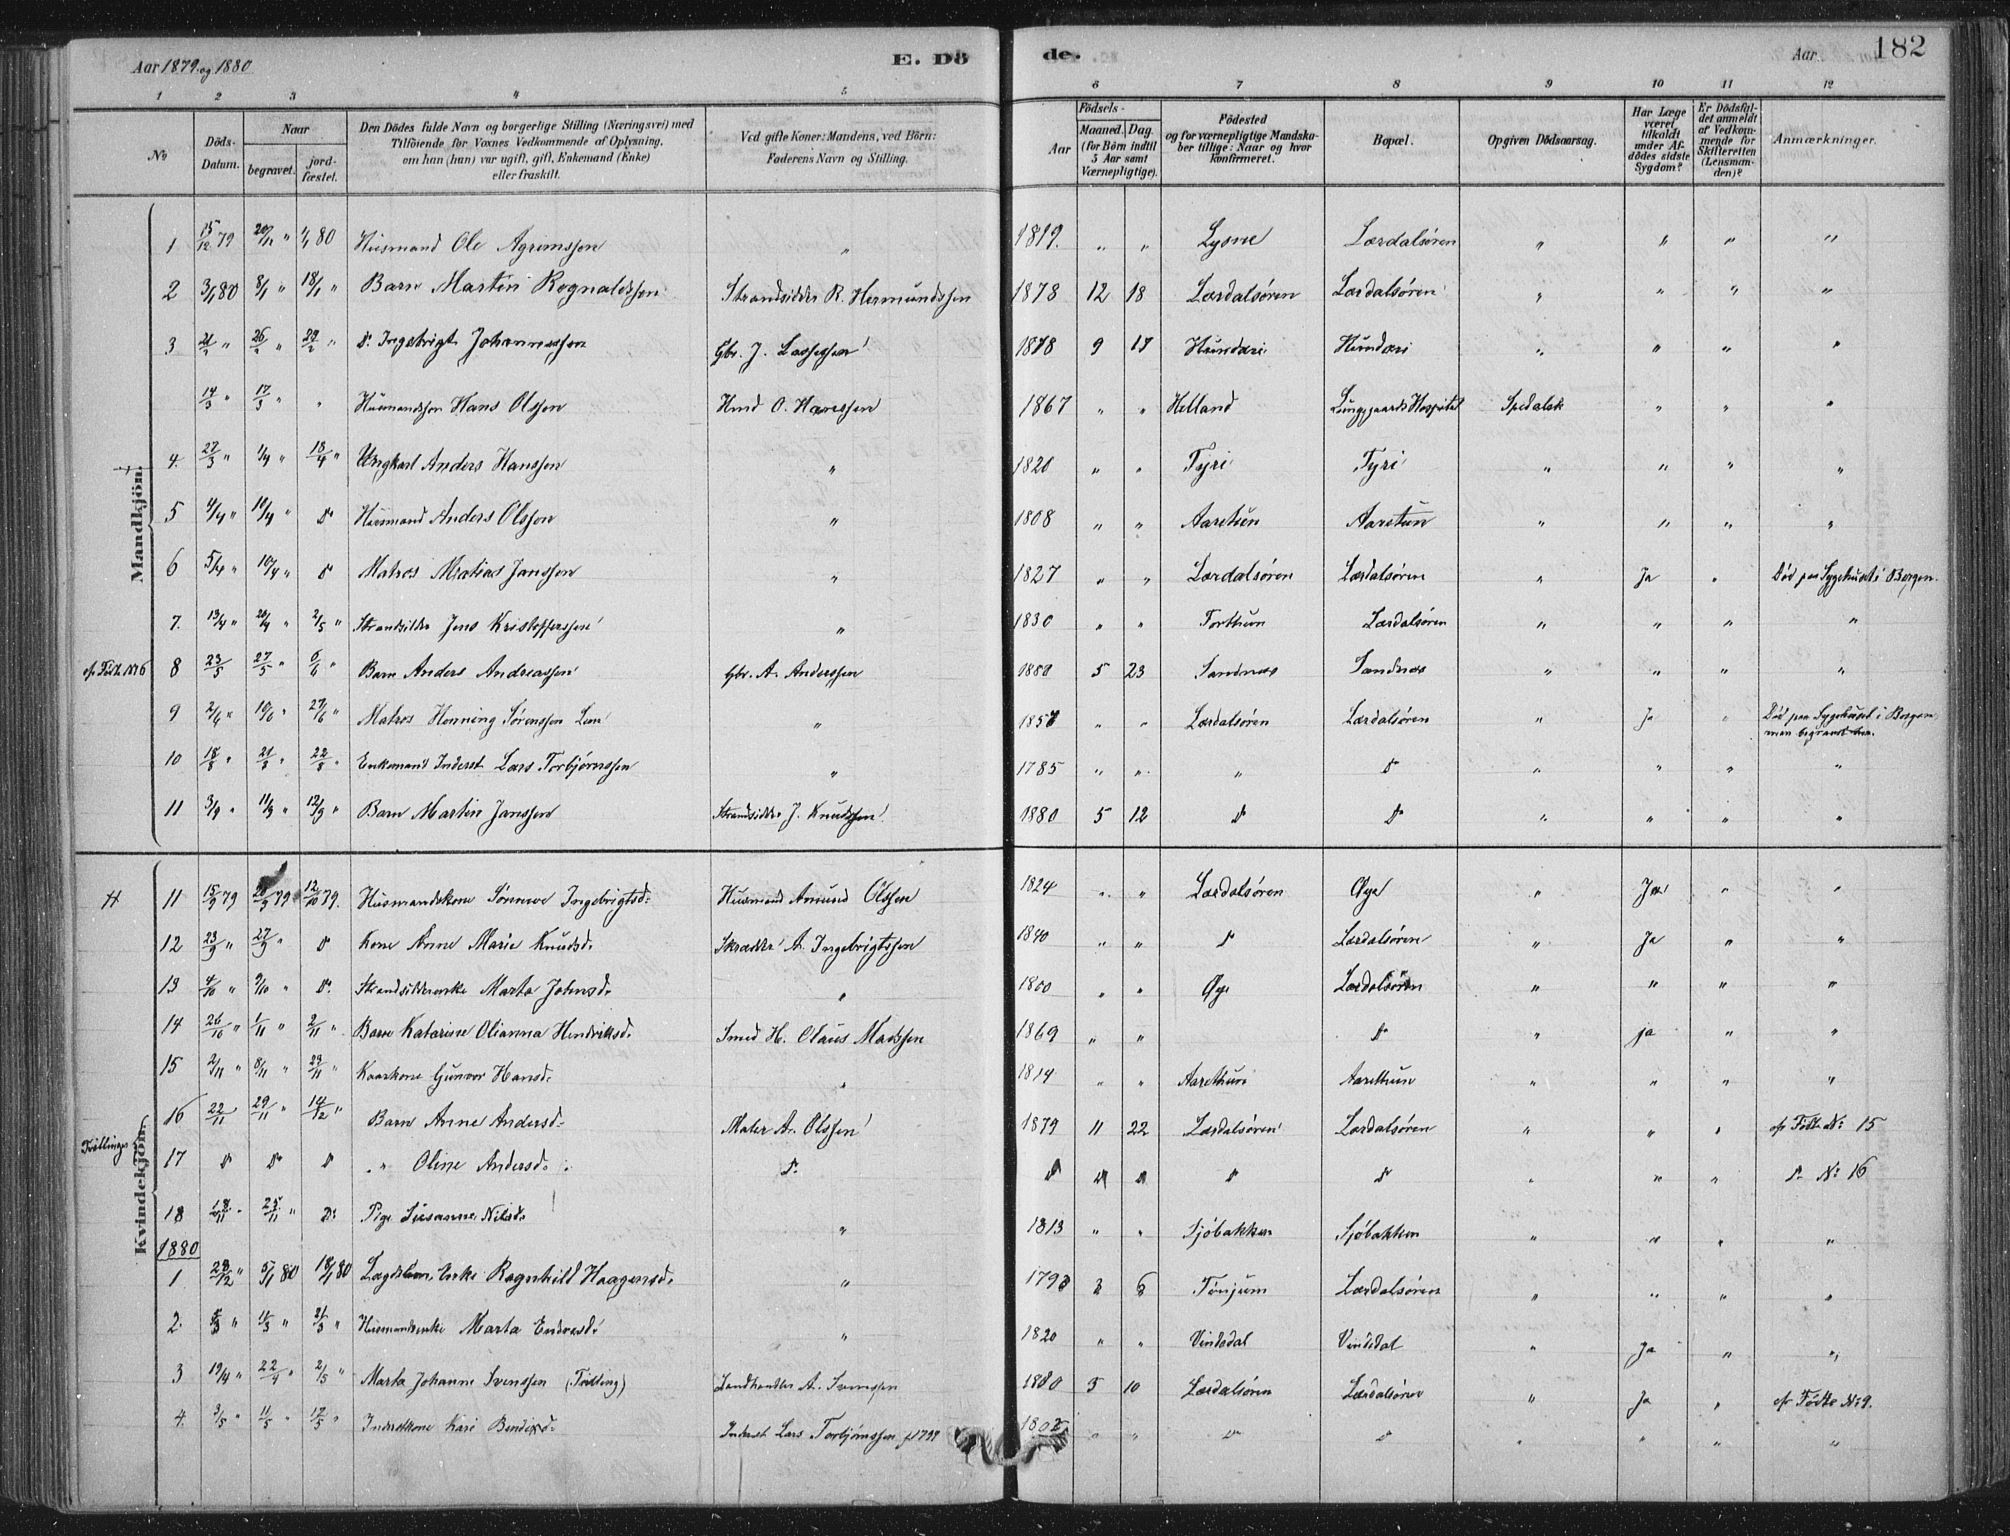 Aar 1879 og 1880 E. Dö de. Aar 182
1 2 3 4 5 6 7 8 9 10 11 12
No
Döds-Datum.
Naar
begravet.
jord-fæstet.
Den Dödes fulde Navn og borgerlige Stilling (Næringsvei) med
Tilföiende for Voxnes Vedkommende af Oplysning,
om han (hun) var ugift, gift, Enkemand (Enke)
eller fraskilt.
Ved gifte Koner: Mandens, ved Börn:
Faderens Navn og Stilling.
Aar
Födsels-
Maaned. Dag.
(for Börn indtil
5 Aar samt
Værnepligtige).
Födested
og for værnepligtige Mandska-
ber tillige: Naar og hvor
konfirmeret.
Bopæl.
Opgiven Dödsaarsag.
Har Læge
været
tilkaldt
under Af-
dödes sidste
Sygdom?
Er Dödsfal-
det anmeldt
af Vedkom-
mende for
Skifteretten
(Lensman-
den)?
Anmærkninger.
Mandkjön.
1 15/12 79 20/12 " 1/1 80 Husmand Ole Agrimssen " 1819. " " Lysne Lærdalsøren " " " "
2 3/1 80 8/1 " 18/1 " Barn Martin Rognaldssen Strandsidder R. Hermundssen 1878 12 18 Lærdalsøren Lærdalsøren " " " "
3 21/2 " 26/2 " 29/2 " Do Ingebrigt Johannessen Gbr. J. Lassessen 1878 9 17 Hunderi Hunderi " " " "
14/3 " 17/3 " " Husmandssøn Hans Olssen Hmd O. Hanssen 1867 " " Helland Lungegaards Hospital Spedalsk " " "
4. 27/3 " 1/4 " 18/4 " Ungkarl Anders Hanssen " 1820 " " Tyri Tyri " " " "
5 4/4 " 10/4 " Do Husmand Anders Olssen " 1808 " " Aaretun Aaretun " " " "
6 5/4 " 10/4 " Do Matros Matias Janssen " 1827 " " Lærdalsøren Lærdalsøren " Ja " Død paa Sygehuset i Bergen.
7. 13/4 " 20/4 " 2/5 " Strandsidder Jens Kristofferssen " 1830 " " Torthun Lærdalsøren " " " "
cf. Født. No 6 8 23/5 27/5 " 6/6 " Barn Anders Andreassen Gbr. A. Anderssen 1880 5 23 Sandnes Sandnes " " " "
9 2/6 " 10/6 " 27/6 " Matros Henning Sørenssen Lem " 1857 " " Lærdalsøren Lærdalsøren " Ja " Død paa Sygehuset i Bergen
men begravet her.
10 18/8 " 21/8 " 22/8 " Enkemand Inderst Lars Torbjørnssen " 1785 " " " Do " " " "
11 3/9 " 11/9 " 12/9 " Barn Martin Janssen Strandsidder J. Knudssen 1880 5 12 Do Do " " " "
Kvindekjön.
11 15/9 79 20/9 79 12/10 79. Husmandskone Sønneve Ingebrigtsd. Husmand Amund Olssen 1824 " " Lærdalsøren Øye " Ja " "
12 23/9 " 27/9 " Do Kone Anne Marie Knudsd. Skrædder A. Ingebrigtssen 1840 " " Do Lærdalsøren " Ja " "
13 4/10 " 9/10 " Do Strandsidderenke Marta Johnsd. " 1800 " " Øye Lærdalsøren " " " "
14 26/10 " 1/11 " 2/11 " Barn Katarine Olianna Henriksd. Smed H. Olaus Madssen 1869 " " Do " ja " "
15 2/11 " 8/11 " 29/11 " Kaarkone Gunvor Hansd. " 1814 " " Aarethun Aarethun " " " "
16 22/11 29/11 " 14/12 " Barn Anne Andersd. Maler A. Olssen 1879 11 22 Lærdalsøren Lærdalsøren " " " cf. Født. No 15
Tvillinger 17 Do Do Do " Oline Andersd. Do Do Do Do Do Do " " " Do No 16
18 18/11 " 25/11 " Do Pige Susanne Nilsd. " 1813 " " Sjøbakken Sjøbakken " " " "
1880
1 29/12 " 5/1 80 18/1 80 Lægdslem, Enke Ragnhild Haagensd. " 1793 3 6 Tønjum Lærdalsøren " " " "
2. 5/3 " 11/3 " 21/3 " Husmandsenke Marta Endresd. " 1820 " " Vindedal Vindedal " Ja " "
3 19/4 " 22/4 " 2/5 " Marta Johanne Svenssen (Tvilling) Landhandler A. Svenssen 1880 3 10 Lærdalsøren Lærdalsøren " Ja " cf. Fødte No 9.
4. 3/5 " 11/5 " 17/5 " Inderstkone Kari Bendixd. Inderst Lars Torbjørnssen f. 1799 1802 " " Do Do " " " "